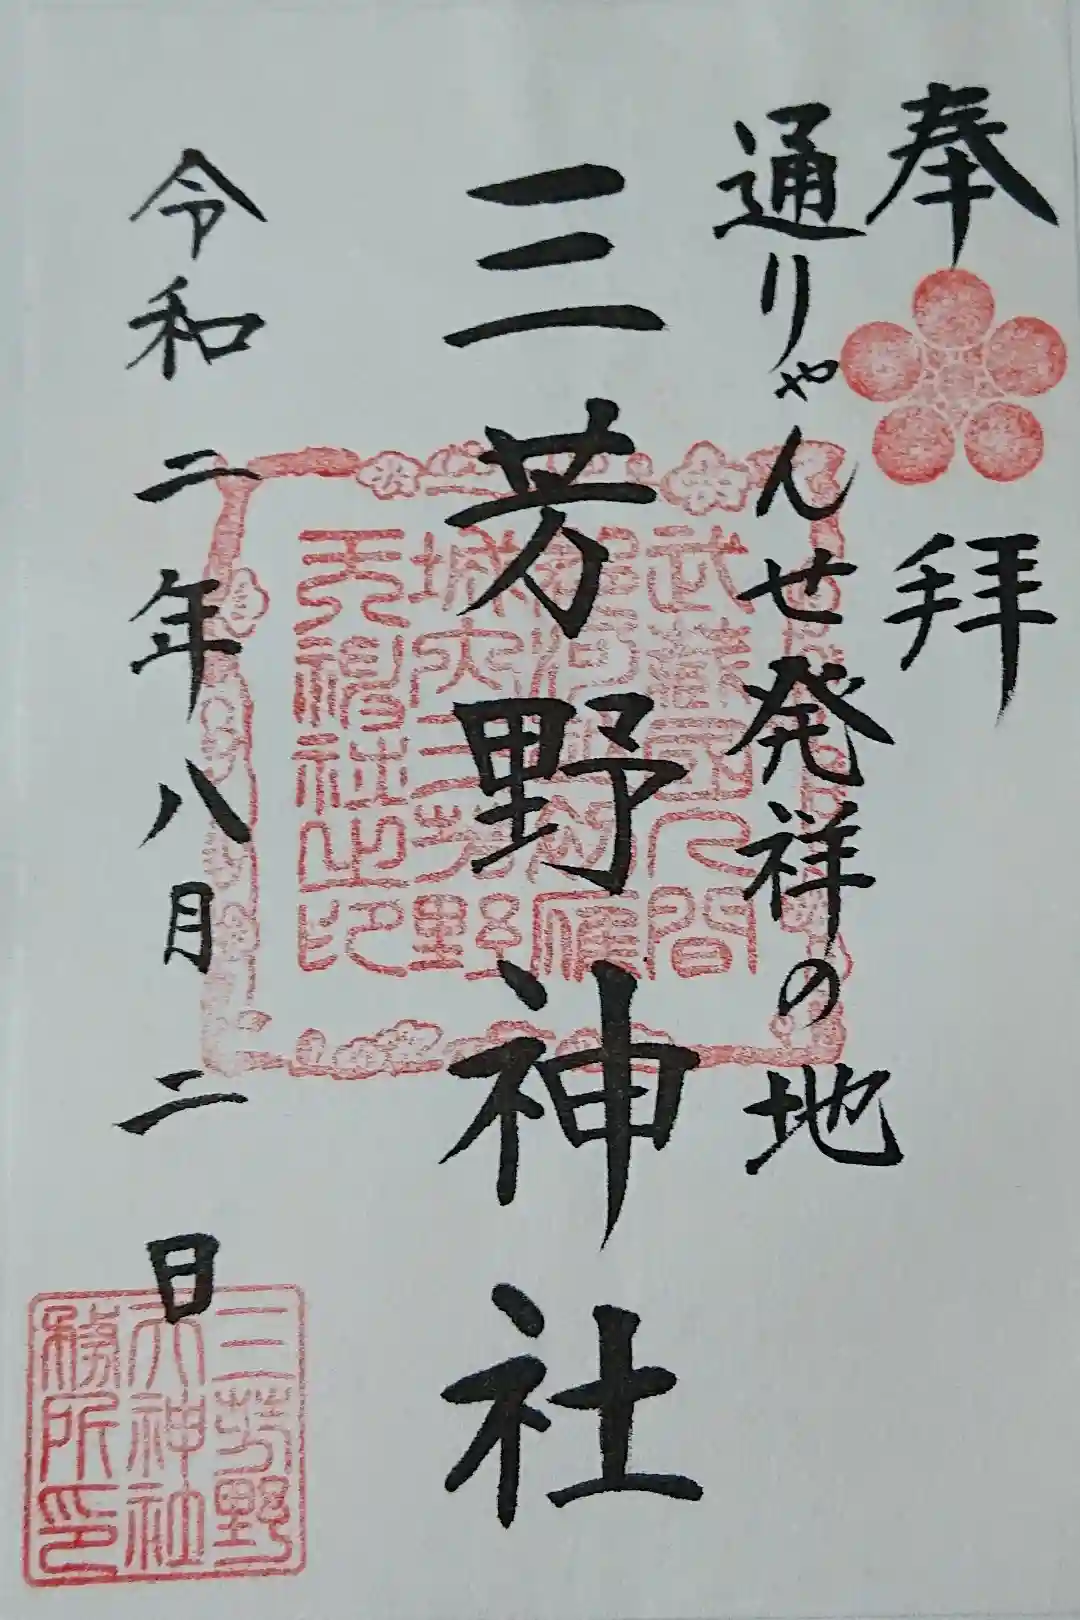 奉拝
通りゃんせ発祥の地
三芳野神社
令和二年八月二日
武蔵国入間
城内三芳野
天神社之印
三芳野
天神社
務所印